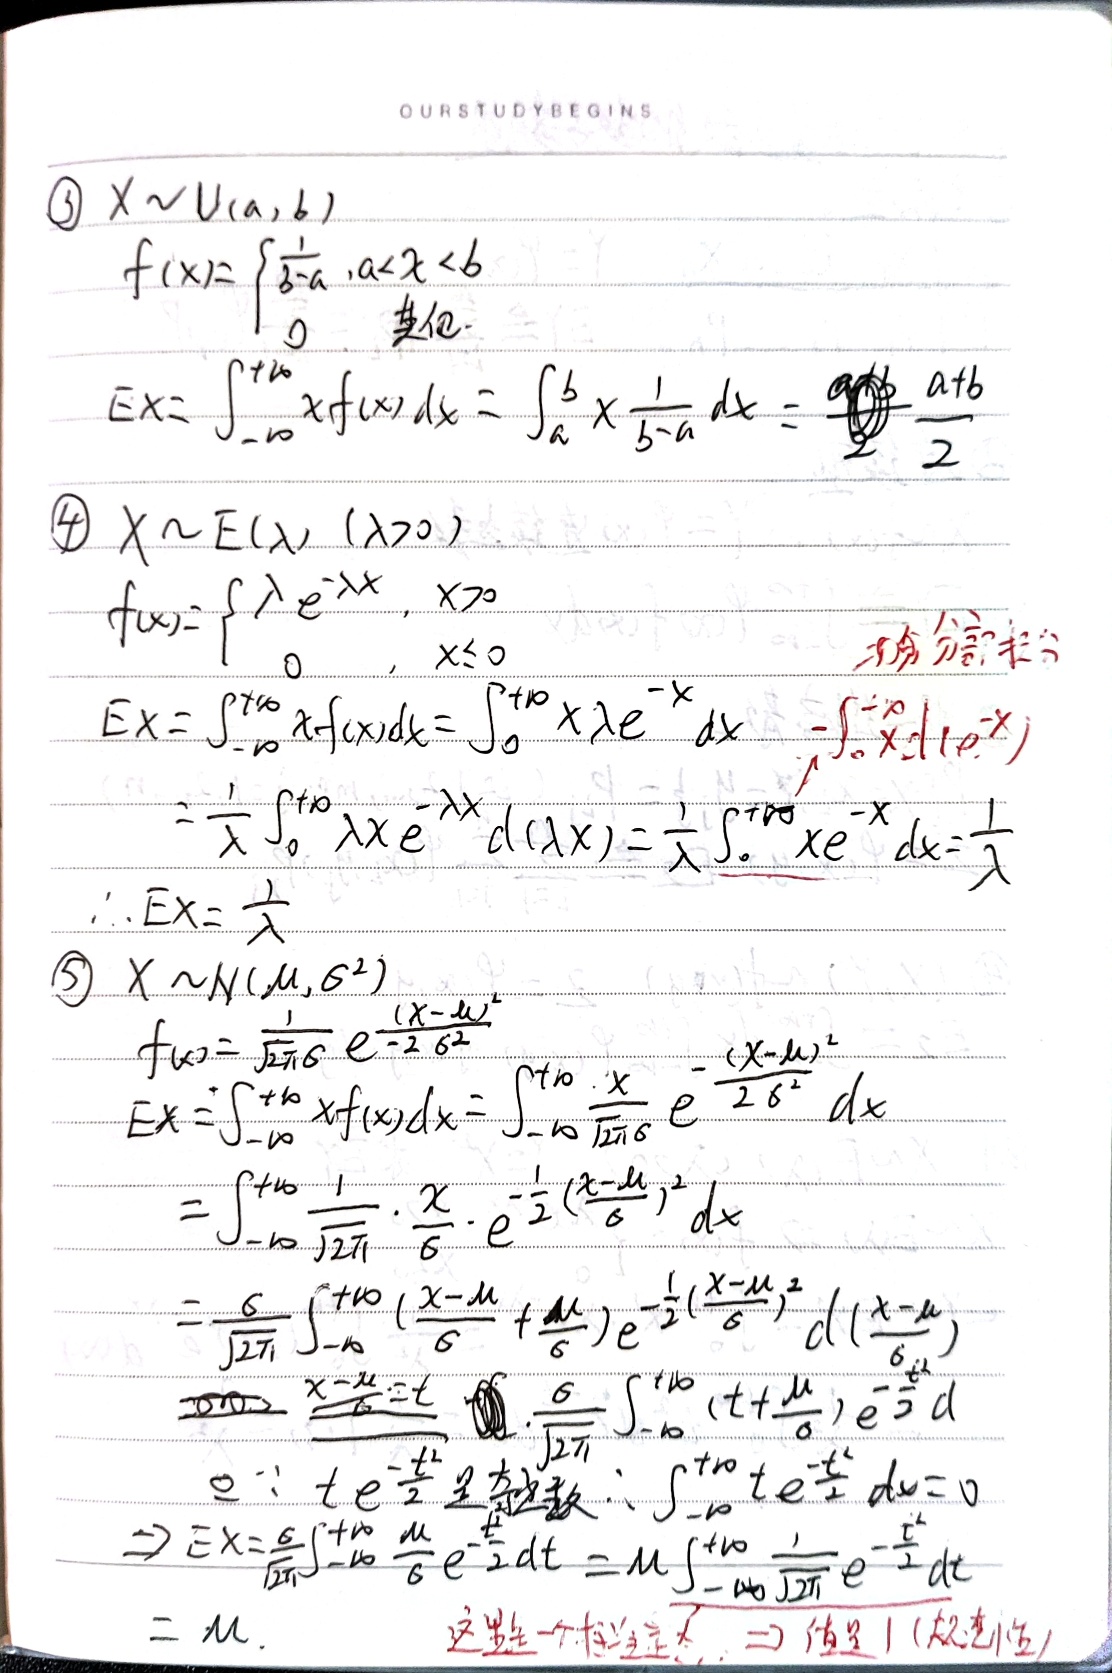 OURSTUDYBEGINS
③ X~U(a,b)
f(x)={ 1/(b-a) , a<x<b
0 其他.
EX=∫_{-∞}^{+∞} xf(x)dx = ∫_a^b x 1/(b-a) dx = (a+b)/2
④ X~E(λ) (λ>0)
f(x)={ λe^{-λx} , x>0
0 , x≤0
分部积分
EX=∫_{-∞}^{+∞} xf(x)dx = ∫_0^{+∞} xλe^{-x} dx
-∫_0^{+∞} xd(e^{-x})
= 1/λ ∫_0^{+∞} λxe^{-λx} d(λx) = 1/λ ∫_0^{+∞} xe^{-x} dx = 1/λ
∴ EX = 1/λ
⑤ X~N(μ,σ²)
f(x)= 1/(√2π σ) e^{(x-μ)²/(-2σ²)}
EX = ∫_{-∞}^{+∞} xf(x)dx = ∫_{-∞}^{+∞} x/(√2π σ) e^{-(x-μ)²/(2σ²)} dx
= ∫_{-∞}^{+∞} 1/√2π · x/σ · e^{-1/2((x-μ)/σ)²} dx
= σ/√2π ∫_{-∞}^{+∞} ((x-μ)/σ + μ/σ) e^{-1/2((x-μ)/σ)²} d((x-μ)/σ)
(x-μ)/σ=t σ/√2π ∫_{-∞}^{+∞} (t+μ/σ) e^{-t²/2} d
∵ te^{-t²/2} 是奇函数 ∴ ∫_{-∞}^{+∞} te^{-t²/2} dx=0
⇒ EX= σ/√2π ∫_{-∞}^{+∞} μ/σ e^{-t²/2} dt = μ∫_{-∞}^{+∞} 1/√2π e^{-t²/2} dt
= μ.
这是一个标准正态 ⇒ 值是1(规范性)